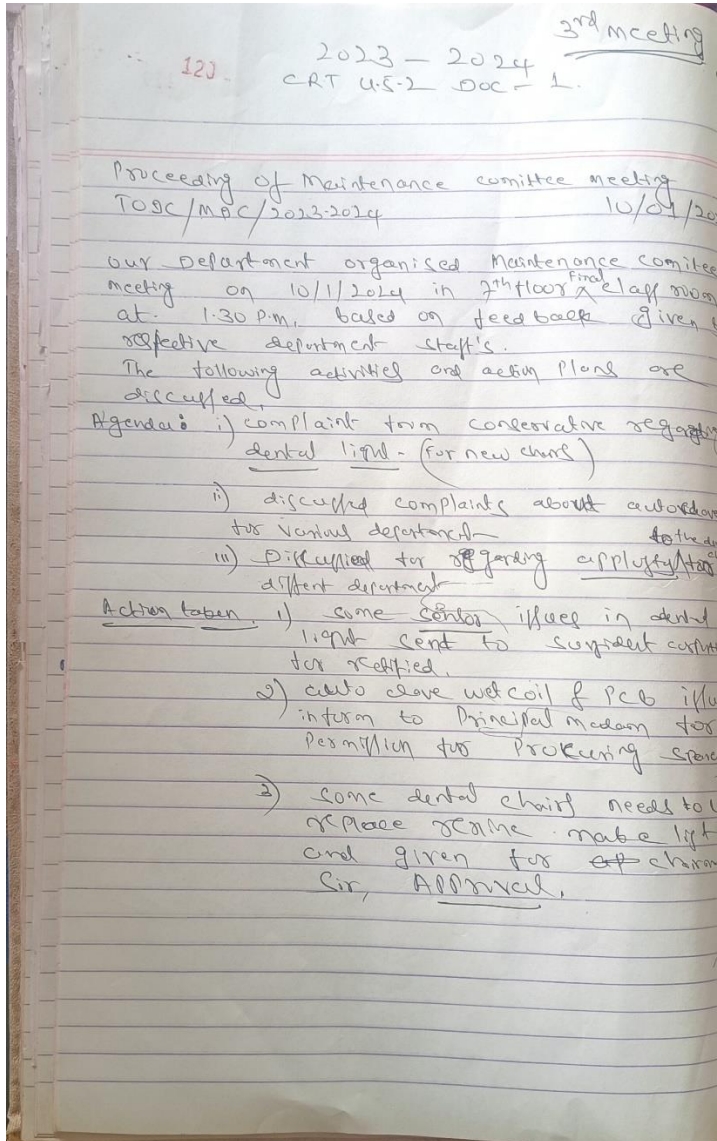 3rd meeting
120
2023 - 2024
CRT 4.5.2 DOC - 1.
Proceeding of Maintenance comittee meeting
TODC/MAC/2023-2024 10/01/20
our Department organised Maintenance comitee
meeting on 10/1/2024 in 7th floor Final class room
at. 1.30 P.m, based on feed back given
respective department staff's.
The following activities and action Plans are
discussed,
Agenda: i) complaint form conservative
dental light - (for new chairs)
ii) discussed complaints about
for various department to the
iii) for regarding
different department
Action taken. 1) some sensor issues in dental
light sent to
for retified.
2) auto clave wet coil & PCB
inform to Principal madam for
Permission for Procuring
3) some dental chairs needs to
replace make list
and given for
Sir, APProval.